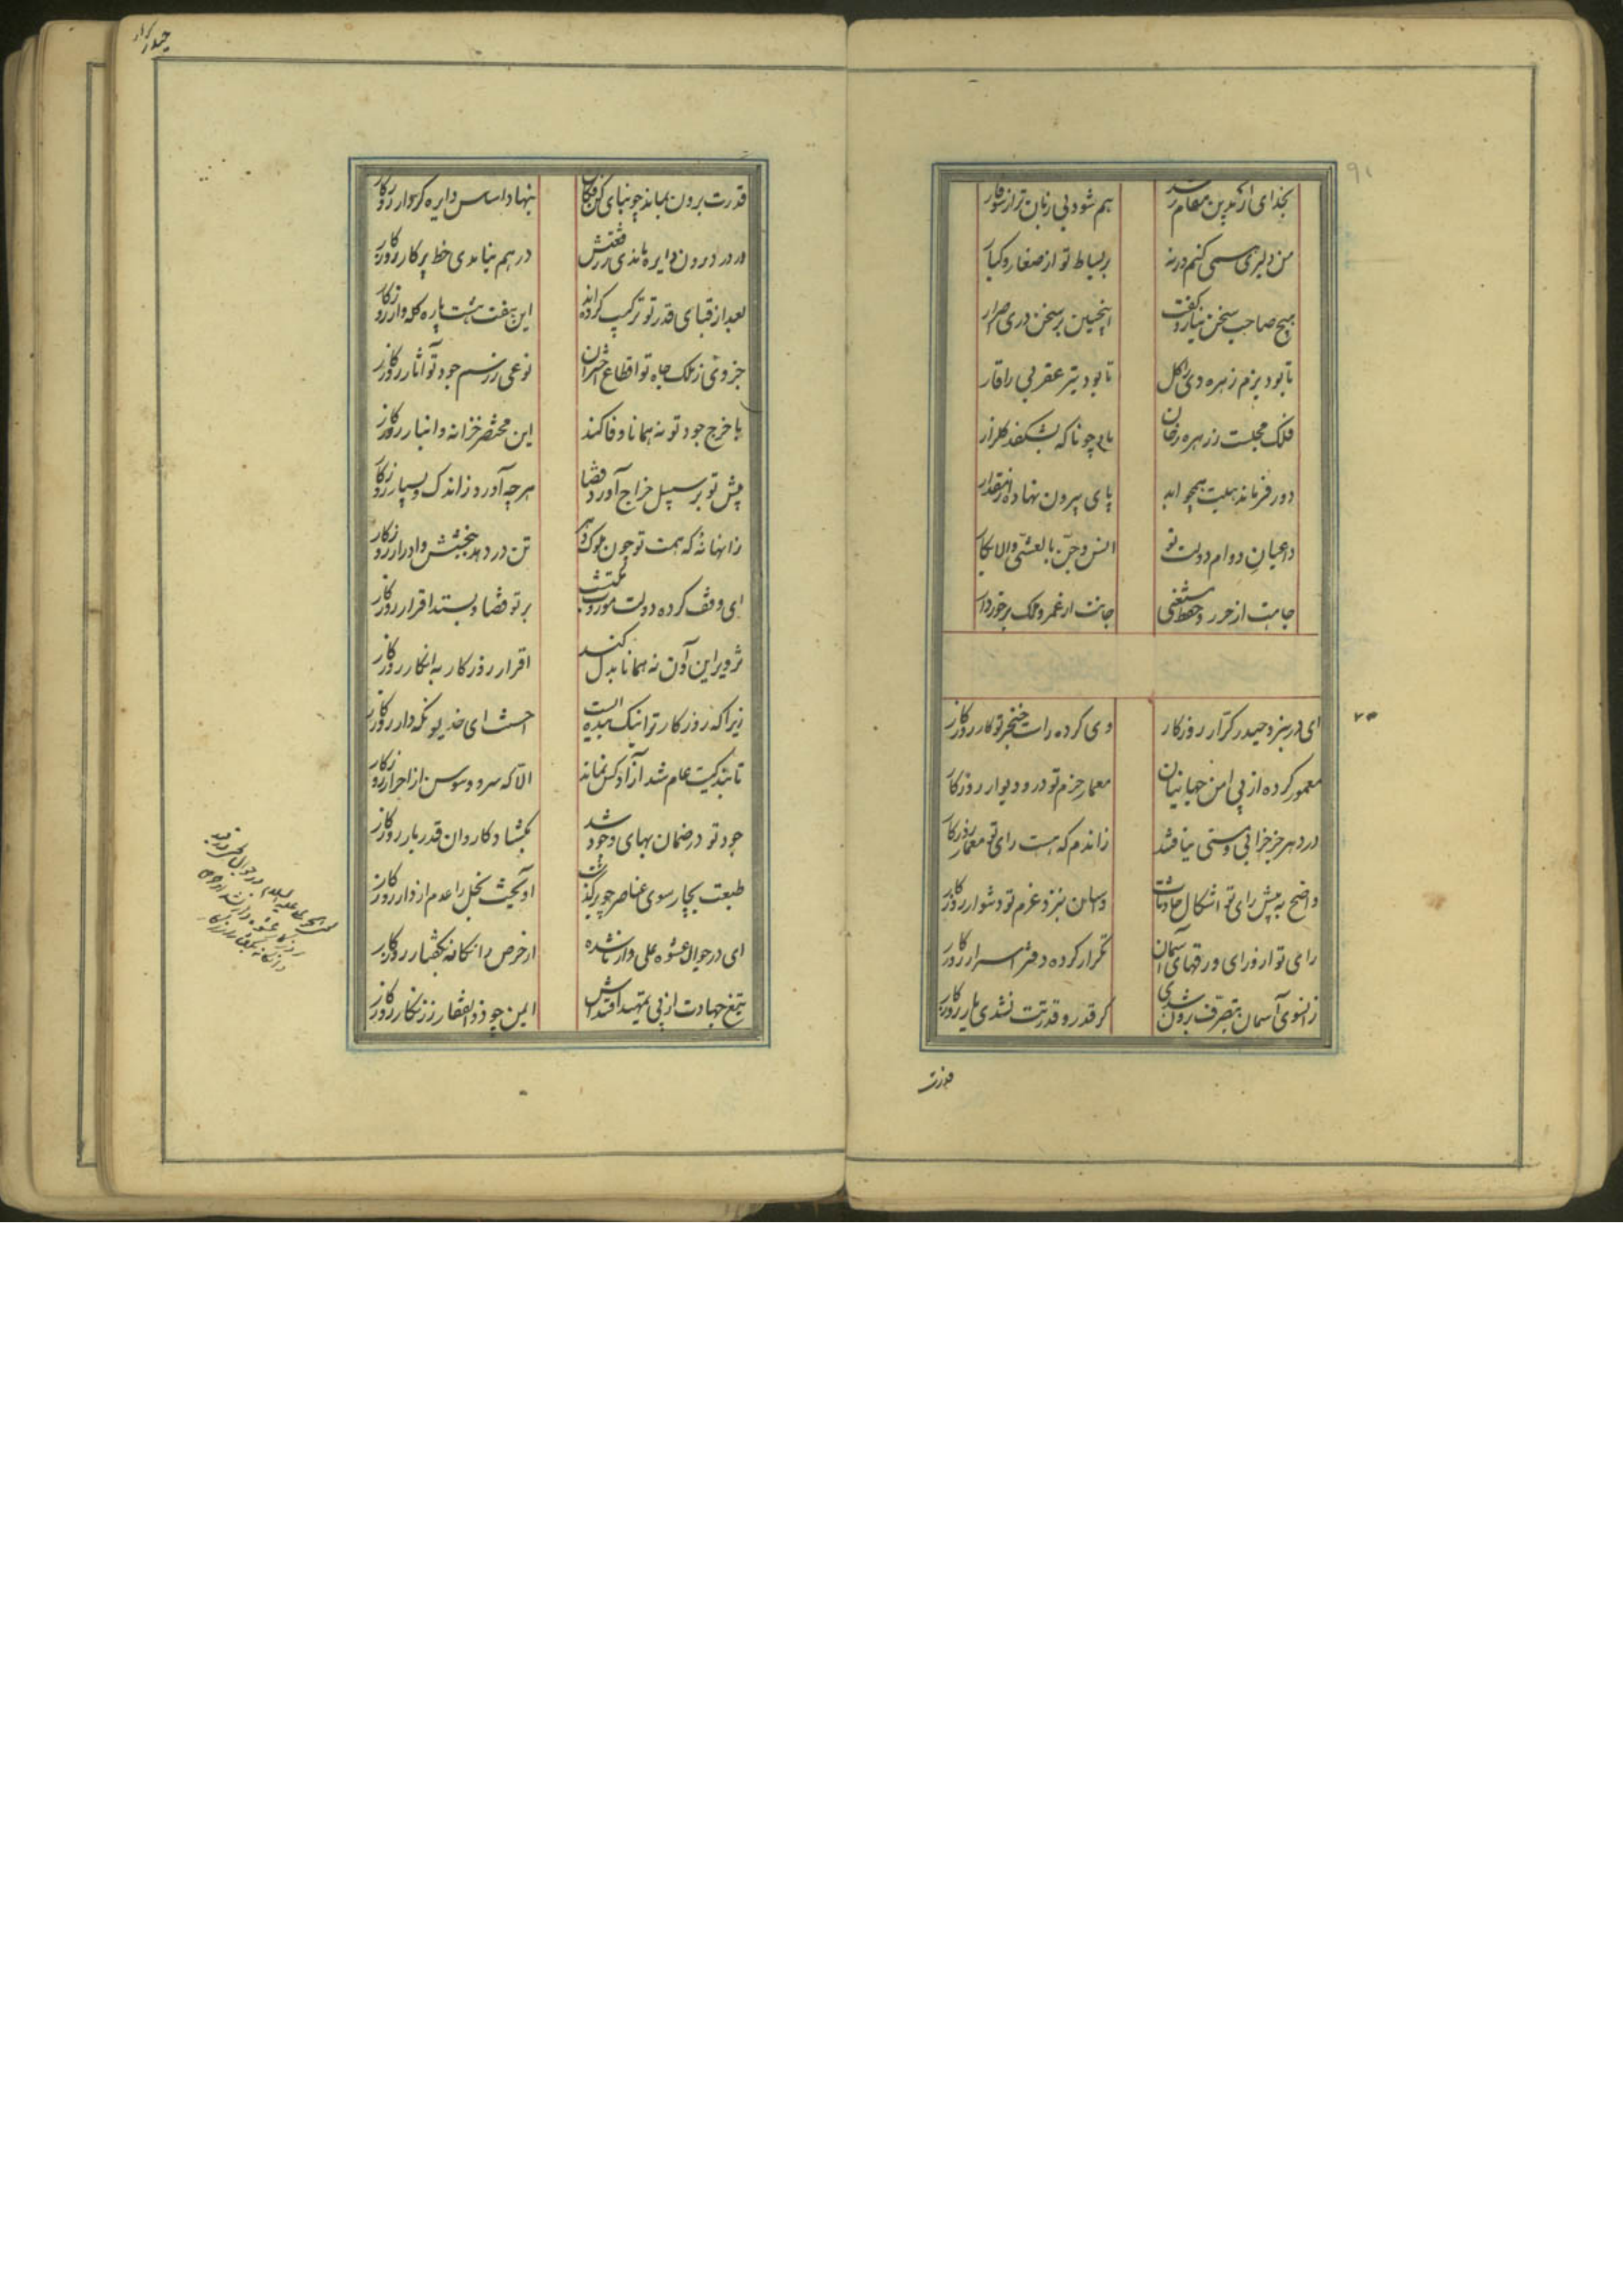 بخدای ار بدین مقام رسد
هم شود بی زبان تر از سوفار
من دلیری همی کنم ورنه
بر بساط تو از صغار و کبار
هیچ صاحب سخن نیارد گفت
اینچنین بر سخن دری اصرار
تا بود بزم زهره دی را گل
تا بود تیر عقربی را قار
فلک مجلست ز زهره رخان
باد چونانکه بشکفد گلزار
دور فرماندهیت همچو ابد
پای بیرون نهاده از مقدار
داعیان دوام دولت تو
انس و جن بالعشی والابکار
جاهت از حرز و حفظ مستغنی
جانت از عمر و ملک برخوردار
ای در نبرد حیدر کرار روزکار
وی کرده راست خنجر تو کار روزکار
معمور کرده از پی امن جهانیان
معمار حزم تو در و دیوار روزکار
در دهر جز خرابی و مستی نیافتند
زاندم که هست رای تو معمار روزکار
واضح به پیش رای تو اشکال حادثات
و اسان بنزد عزم تو دشوار روزکار
رای تو از ورای ورقهای آسمان
تکرار کرده دفتر اسرار روزکار
زانسوی آسمان بتصرف برون شدی
گر قدر و قدرتت نشدی یار روزکار
قدرت
حیدر کرار
قدرت برون بماند چو بنای کن فکان
بنهاد اساس دایره کردار روزکار
ورد درون دایره ماندی ز رفعتش
در هم نیامدی خط پرکار روزکار
بعد از قبای قدر تو ترکیب کرده‌اند
این هفت هشت پاره کله‌وار روزکار
جزوی ز ملک جاه تو اقطاع اختران
نوعی ز رسم جود تو آثار روزکار
با خرج جود تو نه همانا وفا کند
این مختصر خزانه و انبار روزکار
پیش تو بر سبیل خراج آورد قضا
هرچه آورد ز اندک و بسیار روزکار
زانها نهٔ که همت تو چون ملوک دهر
تن در دهد ببخشش و ادرار روزکار
ای وقف کرده دولت موروث مکتسب
بر تو قضا و بستد اقرار روزکار
تزویر این و آن نه همانا بدل کند
اقرار روزکار به انکار روزکار
زیرا که روزکار ترا نیک بنده ایست
احسنت ای خدیو نگه‌دار روزکار
تا بندگیت عام شد آزاد کس نماند
الا که سرو و سوسن از احرار روزکار
جود تو در ضمان بهای وجود شد
بگشاد کاروان قدر بار روزکار
طبعت بچارسوی عناصر چو برگذشت
آویخت بخل را عدم از دار روزکار
ای در جوال عشوه علی‌وار ناشده
از حرص دانگانه بگفتار روزکار
تیغ جهادت از پی تمهید اقتداش
ایمن چو ذوالفقار ز زنگار روزکار